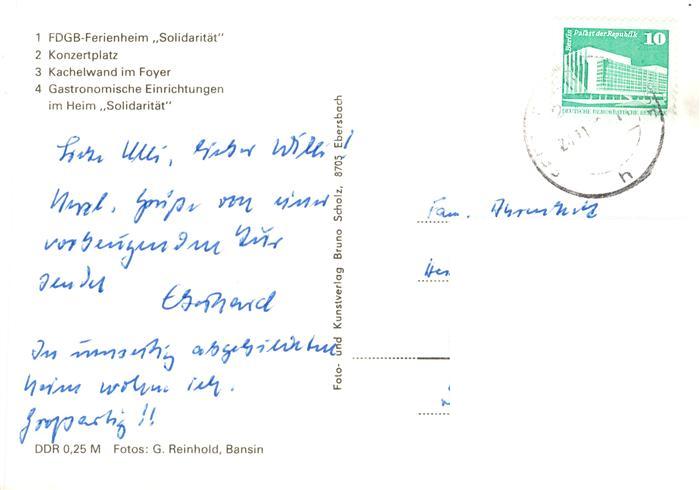 1 FDGB-Ferienheim „Solidarität"
2 Konzertplatz
3 Kachelwand im Foyer
4 Gastronomische Einrichtungen
im Heim „Solidarität"
Liebe Ulli, lieber Willi!
Herzl. Grüße von einer
vorbeugenden Kur
sendet
Eberhard
Im umseitig abgebildeten
Heim wohne ich.
Großartig!!
DDR 0,25 M Fotos: G. Reinhold, Bansin
Foto- und Kunstverlag Bruno Scholz, 8705 Ebersbach
Berlin Palast der Republik 10
DEUTSCHE DEMOKRATISCHE REP
Fam.